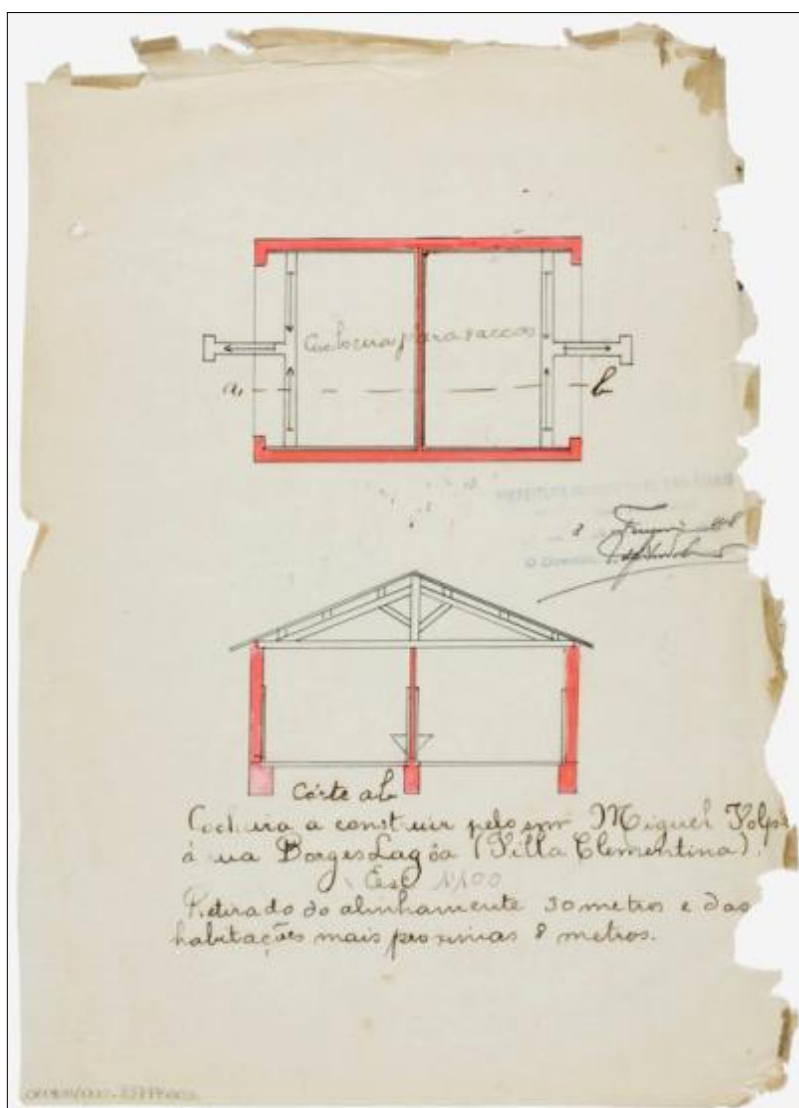 Cocheira para vaccas
a
b
Córte ab
Cocheira a construir pelo snr Miguel Volpi
á rua Borges Lagôa (Villa Clementina).
Esc. 1/100
Retirado do alinhamento 30 metros e das
habitações mais proximas 8 metros.